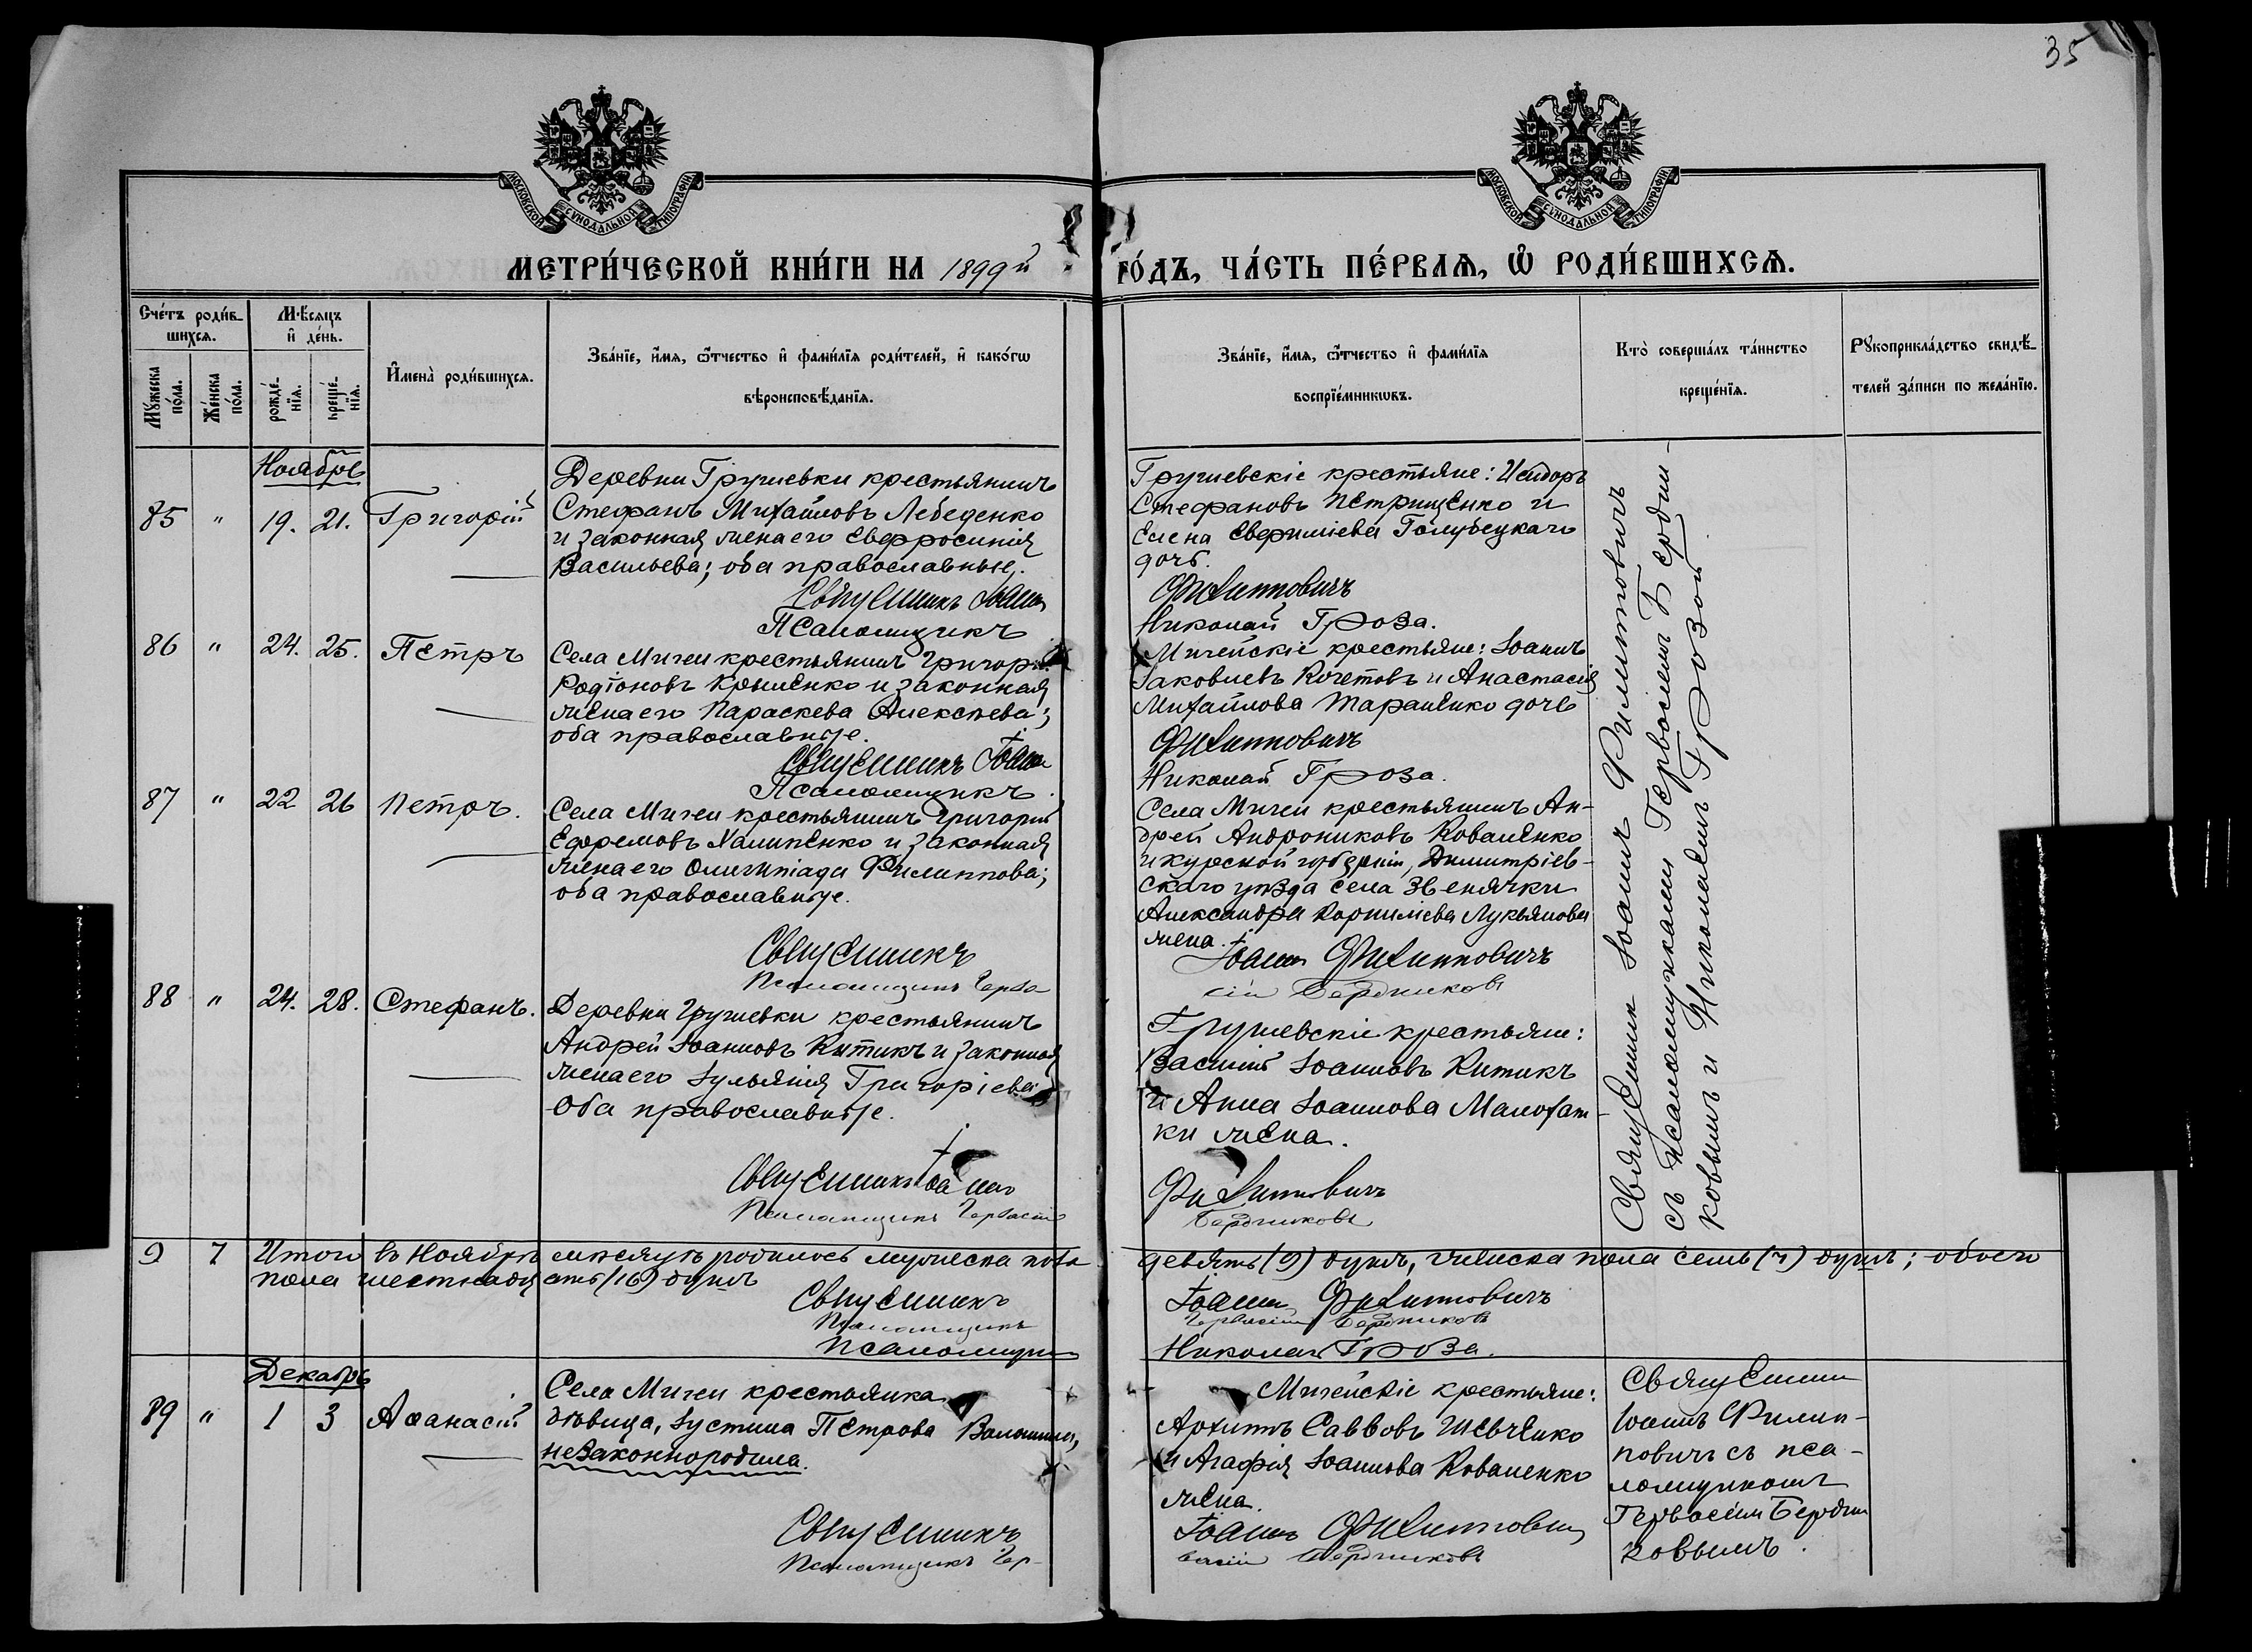 35
МОСКОВСКОЙ СѴНОДАЛЬНОЙ ТИПОГРАФІИ
МОСКОВСКОЙ СѴНОДАЛЬНОЙ ТИПОГРАФІИ
МЕТРИ́ЧЕСКОЙ КНИ́ГИ НА 1899й
ГО́ДЪ, ЧА́СТЬ ПЕ́РВАѦ, Ѡ҆ РОДИ́ВШИХСѦ.
Сче́тъ роди́в-
шихсѧ.
Мѣ́сѧцъ
и҆ де́нь.
Мꙋ́жеска
по́ла.
Же́нска
по́ла.
рожде́-
нїѧ.
креще́-
нїѧ.
И҆мена̀ роди́вшихсѧ.
Зва́нїе, и҆́мѧ, ѻ҆́тчество и҆ фами́лїѧ роди́телей, и҆ како́гѡ
вѣроисповѣ́данїѧ.
Зва́нїе, и҆́мѧ, ѻ҆́тчество и҆ фами́лїѧ
воспрїе́мникѡвъ.
Кто̀ соверша́лъ та́инство
креще́нїѧ.
Рꙋкоприкла́дство свидѣ́-
телей за́писи по жела́нїю.
Ноябрь
85 " 19. 21. Григорій
Деревни Грушевки крестьянинъ
Стефанъ Михайловъ Лебеденко
и законная жена его Евфросинія
Васильева; оба православные.
Священникъ Іоаннъ
Псаломщикъ
Грушевскіе крестьяне: Исидоръ
Стефановъ Петрищенко и
Елена Евфиміева Голубецкаго
дочь.
Филипповичъ
Николай Гроза.
86 " 24. 25. Петръ
Села Мигеи крестьянинъ Григорій
Родіоновъ Крыленко и законная
жена его Параскева Алексѣева;
оба православные.
Священникъ Іоаннъ
Псаломщикъ
Мигейскіе крестьяне: Іоаннъ
Іаковлевъ Кочетовъ и Анастасія
Михайлова Тараненко дочь
Филипповичъ
Николай Гроза.
87 " 22 26 Петръ.
Села Мигеи крестьянинъ Григорій
Ефремовъ Халипенко и законная
жена его Олимпіада Филиппова;
оба православные.
Священникъ
Псаломщикъ Герва
Села Мигеи крестьянинъ Ан-
дрей Андрониковъ Коваленко
и курской губерніи, Димитріев-
скаго уѣзда села Звенячки
Александра Корниліева Лукьянова
жена.
Іоаннъ Филипповичъ
сій Бердниковъ
88 " 24. 28. Стефанъ.
Деревни Грушевки крестьянинъ
Андрей Іоанновъ Китикъ и законная
жена его Іуліанія Григоріева
Оба православные.
Священникъ Іоаннъ
Псаломщикъ Гервасій
Грушевскіе крестьяне:
Василій Іоанновъ Китикъ
и Анна Іоаннова Малохат-
ки жена.
Филипповичъ
Бердниковъ
Священникъ Іоаннъ Филипповичъ
съ псаломщиками Гервасіемъ Бердни-
ковымъ и Николаемъ Грозой.
9 7 Итого въ Ноябрѣ мѣсяцѣ родилось мужеска пола девять (9) душъ, женска пола семь (7) душъ; обоего
пола шестнадцать (16) душъ
Священникъ Іоаннъ Филипповичъ
Псаломщикъ Гервасій Бердниковъ
Псаломщикъ Николай Гроза.
Декабрь
89 " 1 3 Аѳанасій
Села Мигеи крестьянка
дѣвица, Іустина Петрова
незаконнородила.
Священникъ
Псаломщикъ Гер-
Мигейскіе крестьяне:
Архипъ Саввовъ Шевченко
и Агафія Іоаннова Коваленко
жена.
Іоаннъ Филипповичъ
васій Бердниковъ
Священникъ
Іоаннъ Филип-
повичъ съ пса-
ломщикомъ
Гервасіемъ Бердни
ковымъ.